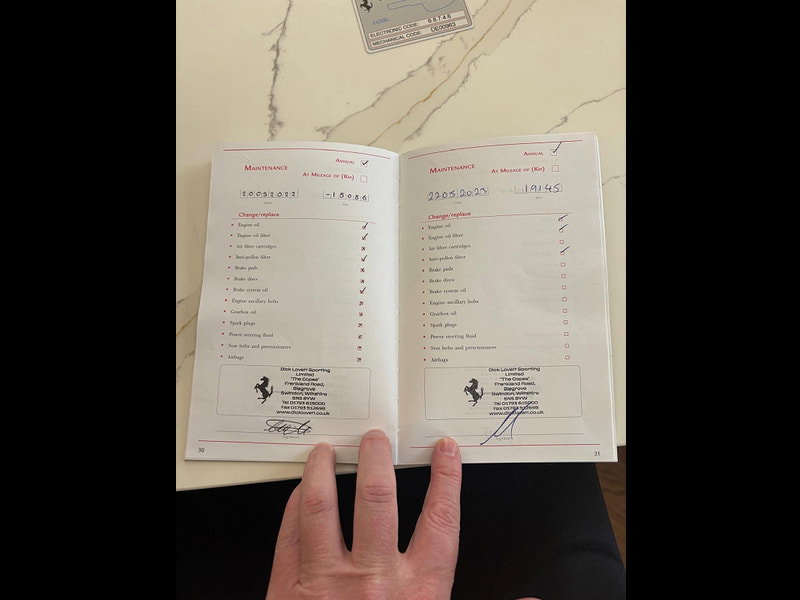 CODE:
ELECTRONIC CODE: 6.6.7.4.6
MECHANICAL CODE: DE00963
ANNUAL
MAINTENANCE
AT MILEAGE OF (KM)
20052022
-15086
Date
Km
Change/replace
• Engine oil
• Engine oil filter
• Air filter cartridges
• Anti-pollen filter
• Brake pads
• Brake discs
• Brake system oil
• Engine ancillary belts
• Gearbox oil
• Spark plugs
• Power steering fluid
• Seat belts and pretensioners
• Airbags
Dick Lovett Sporting
Limited
'The Copse'
Frankland Road,
Blagrove
Swindon, Wiltshire
SN5 8YW
Tel 01793 615000
Fax 01793 512698
www.dicklovett.co.uk
Signature
30
ANNUAL
MAINTENANCE
AT MILEAGE OF (KM)
22052023
-19145
Date
Km
Change/replace
• Engine oil
• Engine oil filter
• Air filter cartridges
• Anti-pollen filter
• Brake pads
• Brake discs
• Brake system oil
• Engine ancillary belts
• Gearbox oil
• Spark plugs
• Power steering fluid
• Seat belts and pretensioners
• Airbags
Dick Lovett Sporting
Limited
'The Copse'
Frankland Road,
Blagrove
Swindon, Wiltshire
SN5 8YW
Tel 01793 615000
Fax 01793 512698
www.dicklovett.co.uk
Signature
31